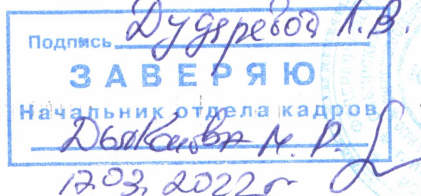 Подпись Дударевой Л.В.
ЗАВЕРЯЮ
Начальник отдела кадров
М. Р.
17.03.2022 г